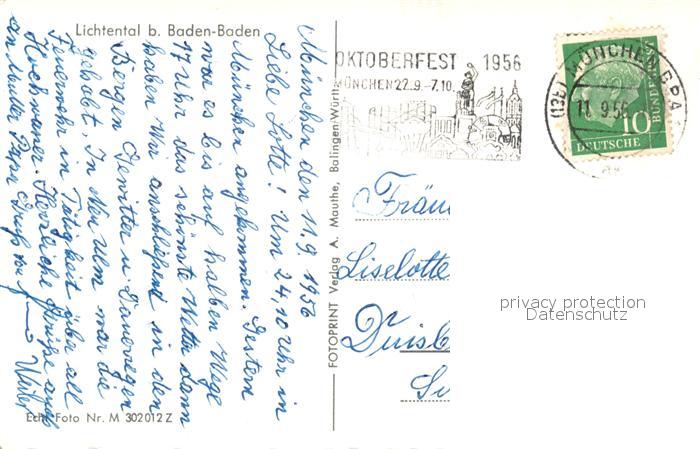 Lichtental b. Baden-Baden
München den 11.9.1956
Liebe Lotte! Um 24,10 Uhr in
München angekommen. Gestern
war es bis auf halben Wege
17 Uhr das schönste Wetter dann
haben wir anschließend in den
Bergen Gewitter u Dauerregen
gehabt. In Neu Ulm war die
Feuerwehr in Tätigkeit über all
Hochwasser. Herzliche Grüße auch
an Mutter Papa Gruß von
Echt Foto Nr. M 302012 Z
FOTOPRINT Verlag A. Mauthe, Balingen/Württ
OKTOBERFEST 1956
MÜNCHEN 22.9.-7.10.
(13b) MÜNCHEN BPA
11.9.56
10
DEUTSCHE
BUNDES
Fräu
Liselotte
Duisb
privacy protection
Datenschutz